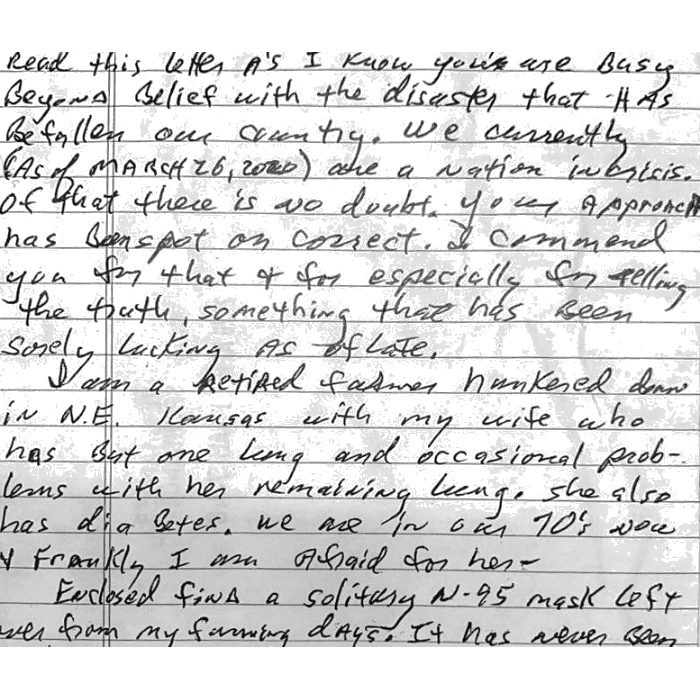 Read this letter As I Know you're are Busy
Beyond Belief with the disaster that HAS
Befallen our country. We currently
(As of MARCH 26, 2020) are a nation in crisis.
Of that there is no doubt. your Approach
has Been spot on correct. I commend
you for that & for especially for telling
the truth, something that has Been
sorely lacking As of Late.
I am a Retired farmer hunkered down
in N.E. Kansas with my wife who
has But one lung and occasional prob-
lems with her remaining lung. She also
has diaBetes. we are in our 70's now
& Frankly I am Afraid for her-
Enclosed find a solitary N-95 mask Left
over from my farming days. It has never Been